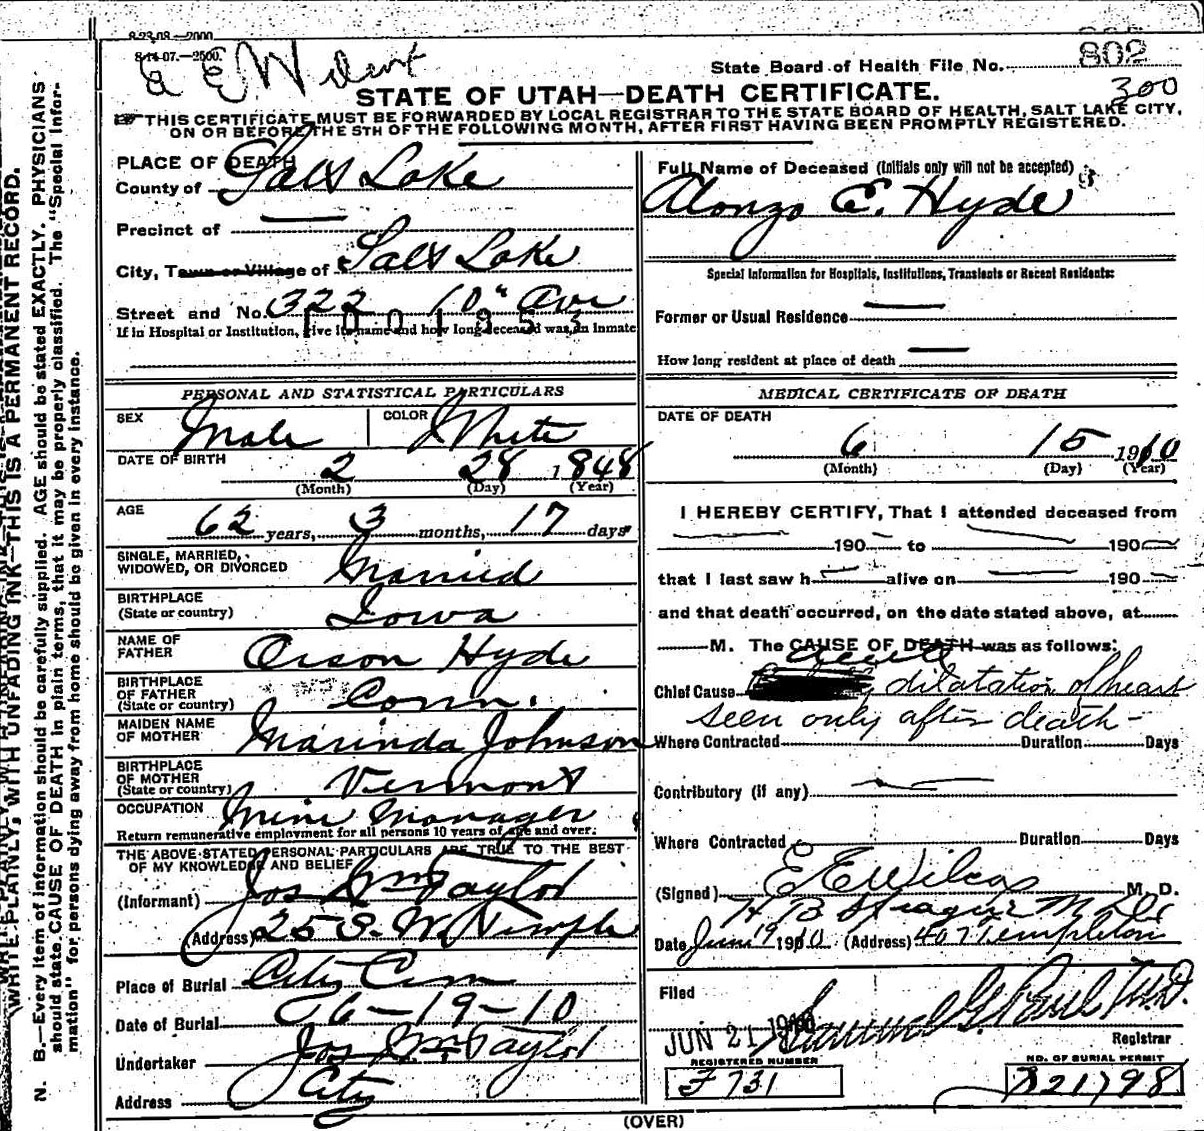 8-23-08.—2000.
8-14-07.—2500.
E E Wilcox
State Board of Health File No. 802
300
STATE OF UTAH—DEATH CERTIFICATE.
THIS CERTIFICATE MUST BE FORWARDED BY LOCAL REGISTRAR TO THE STATE BOARD OF HEALTH, SALT LAKE CITY,
ON OR BEFORE THE 5TH OF THE FOLLOWING MONTH, AFTER FIRST HAVING BEEN PROMPTLY REGISTERED.
WRITE PLAINLY, WITH UNFADING INK—THIS IS A PERMANENT RECORD.
N. B.—Every item of information should be carefully supplied. AGE should be stated EXACTLY. PHYSICIANS
should state CAUSE OF DEATH in plain terms, that it may be properly classified. The "Special Infor-
mation" for persons dying away from home should be given in every instance.
PLACE OF DEATH
County of Salt Lake
Precinct of
City, Town or Village of Salt Lake
Street and No. 322 10th Ave
If in Hospital or Institution, give its name and how long deceased was an inmate
PERSONAL AND STATISTICAL PARTICULARS
SEX Male COLOR White
DATE OF BIRTH 2 28 1848
(Month) (Day) (Year)
AGE
62 years, 3 months, 17 days
SINGLE, MARRIED,
WIDOWED, OR DIVORCED Married
BIRTHPLACE
(State or country) Iowa
NAME OF
FATHER Orson Hyde
BIRTHPLACE
OF FATHER
(State or country) Conn.
MAIDEN NAME
OF MOTHER Marinda Johnson
BIRTHPLACE
OF MOTHER
(State or country) Vermont
OCCUPATION Mine Manager
Return remunerative employment for all persons 10 years of age and over.
THE ABOVE STATED PERSONAL PARTICULARS ARE TRUE TO THE BEST
OF MY KNOWLEDGE AND BELIEF
(Informant) Jos Wm Taylor
(Address) 25 S. W. Temple
Place of Burial City Cem
Date of Burial 6-19-10
Undertaker Jos Wm Taylor
Address City
Full Name of Deceased (Initials only will not be accepted)
Alonzo E. Hyde
Special Information for Hospitals, Institutions, Transients or Recent Residents:
Former or Usual Residence
How long resident at place of death
MEDICAL CERTIFICATE OF DEATH
DATE OF DEATH
6 15 1910
(Month) (Day) (Year)
I HEREBY CERTIFY, That I attended deceased from
190 to 190
that I last saw h alive on 190
and that death occurred, on the date stated above, at
M. The CAUSE OF DEATH was as follows:
Chief Cause acute dilatation of heart
seen only after death-
Where Contracted Duration Days
Contributory (if any)
Where Contracted Duration Days
(Signed) E E Wilcox M. D.
H B
Date June 19 1910 (Address) 407 Templeton
Filed
JUN 21 1910 Samuel G. Paul M.D.
Registrar
REGISTERED NUMBER
F731
NO. OF BURIAL PERMIT
B21798
(OVER)